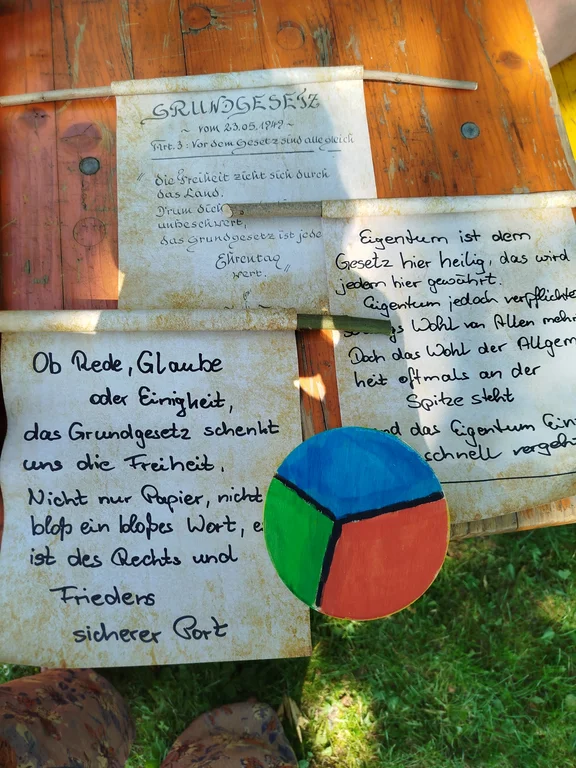 GRUNDGESETZ
~ vom 23.05.1949 ~
Art. 3: Vor dem Gesetz sind alle gleich
"die Freiheit zieht sich durch
das Land.
Drum dich
unbeschwert,
das Grundgesetz ist jede
Ehrentag
wert."
Eigentum ist dem
Gesetz hier heilig, das wird
jedem hier gewährt.
Eigentum jedoch verpflichte
Wohl von Allen mehr
Doch das Wohl der Allgem
heit oftmals an der
Spitze steht
nd das Eigentum
schnell vergeh
Ob Rede, Glaube
oder Einigkeit,
das Grundgesetz schenkt
uns die Freiheit.
Nicht nur Papier, nicht
bloß ein bloßes Wort, e
ist des Rechts und
Friedens
sicherer Port